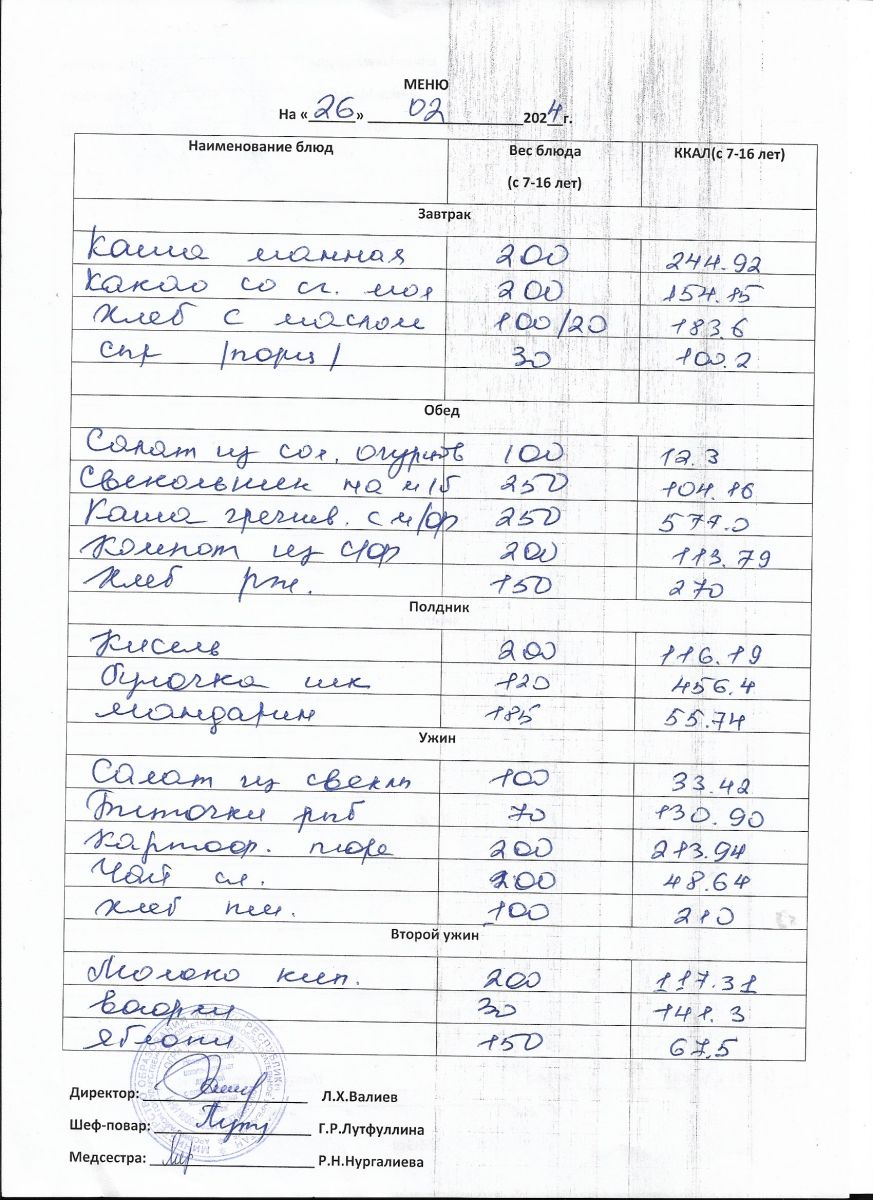 МЕНЮ
На «26» 02 2024 г.
Наименование блюд Вес блюда (с 7-16 лет) ККАЛ(с 7-16 лет)
Завтрак
Каша манная 200 244.92
Какао со сг. мол 200 154.15
Хлеб с маслом 100/20 183.6
сыр /порц/ 30 100.2
Обед
Салат из сол. огурцов 100 12.3
Свекольник на м/б 250 104.16
Каша гречнев. с м/фр 250 577.0
Компот из с/ф 200 113.79
Хлеб рж. 150 270
Полдник
Кисель 200 116.19
Булочка шк 120 456.4
мандарин 185 55.74
Ужин
Салат из свеклы 100 33.42
Биточки рыб 70 130.90
Картоф. пюре 200 213.94
Чай сл. 200 48.64
хлеб пш. 100 210
Второй ужин
Молоко кип. 200 117.31
вафли 30 141.3
яблоки 150 67,5
Директор: Л.Х.Валиев
Шеф-повар: Г.Р.Лутфуллина
Медсестра: Р.Н.Нургалиева